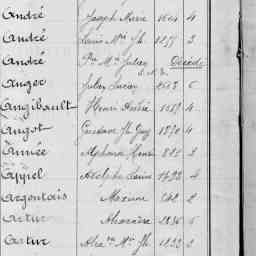 André Joseph Marie 1604 4
André Louis Mie Jh. 1877 3
André Pre Mie Julien Décédé
Auger Julien 5
Angibault Henri André 1059 4
Angot Gustave Jh Guy 1870 4
Année Alphonse Henri 885 3
Appel Adolphe Louis 1492 4
Argentais Maxime 248 2
Artur Alexandre 1836 5
Artur Alexre Mie Jh. 1822 2